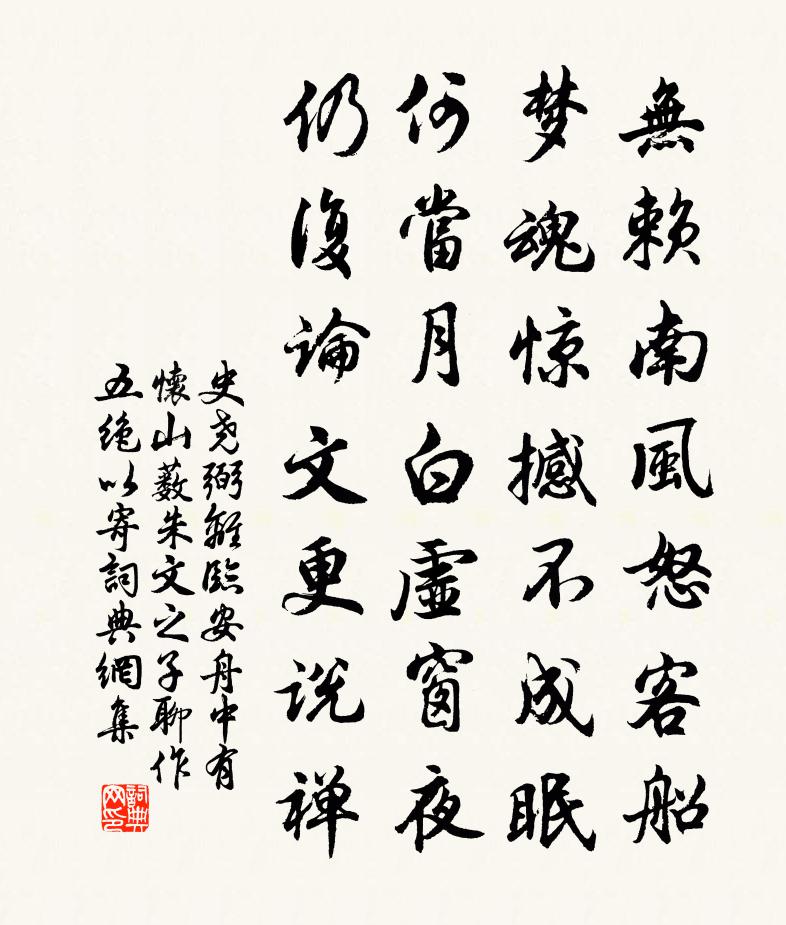 無赖南風怒客船
梦魂惊撼不成眠
何當月白虛窗夜
仍復論文更说禅
史尧弼離臨安舟中有
懷山薮朱文之子聊作
五绝以寄詞典網集
詞典
网印